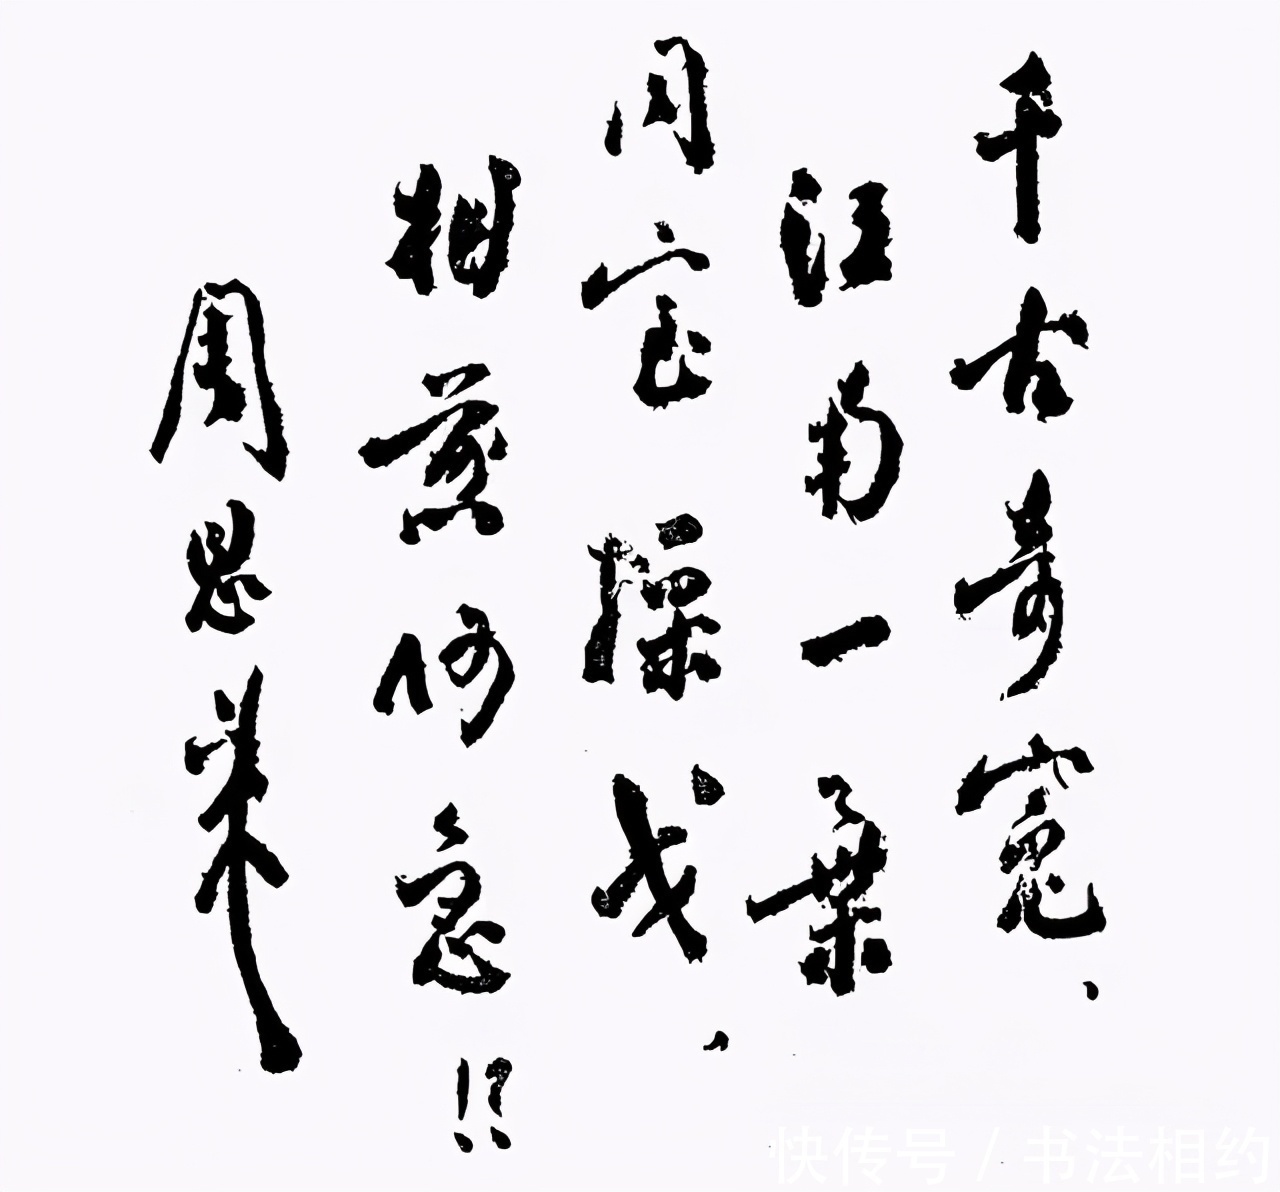 千古奇冤、
江南一葉
同室操戈、
相煎何急!?
周恩来
快传号/书法相约